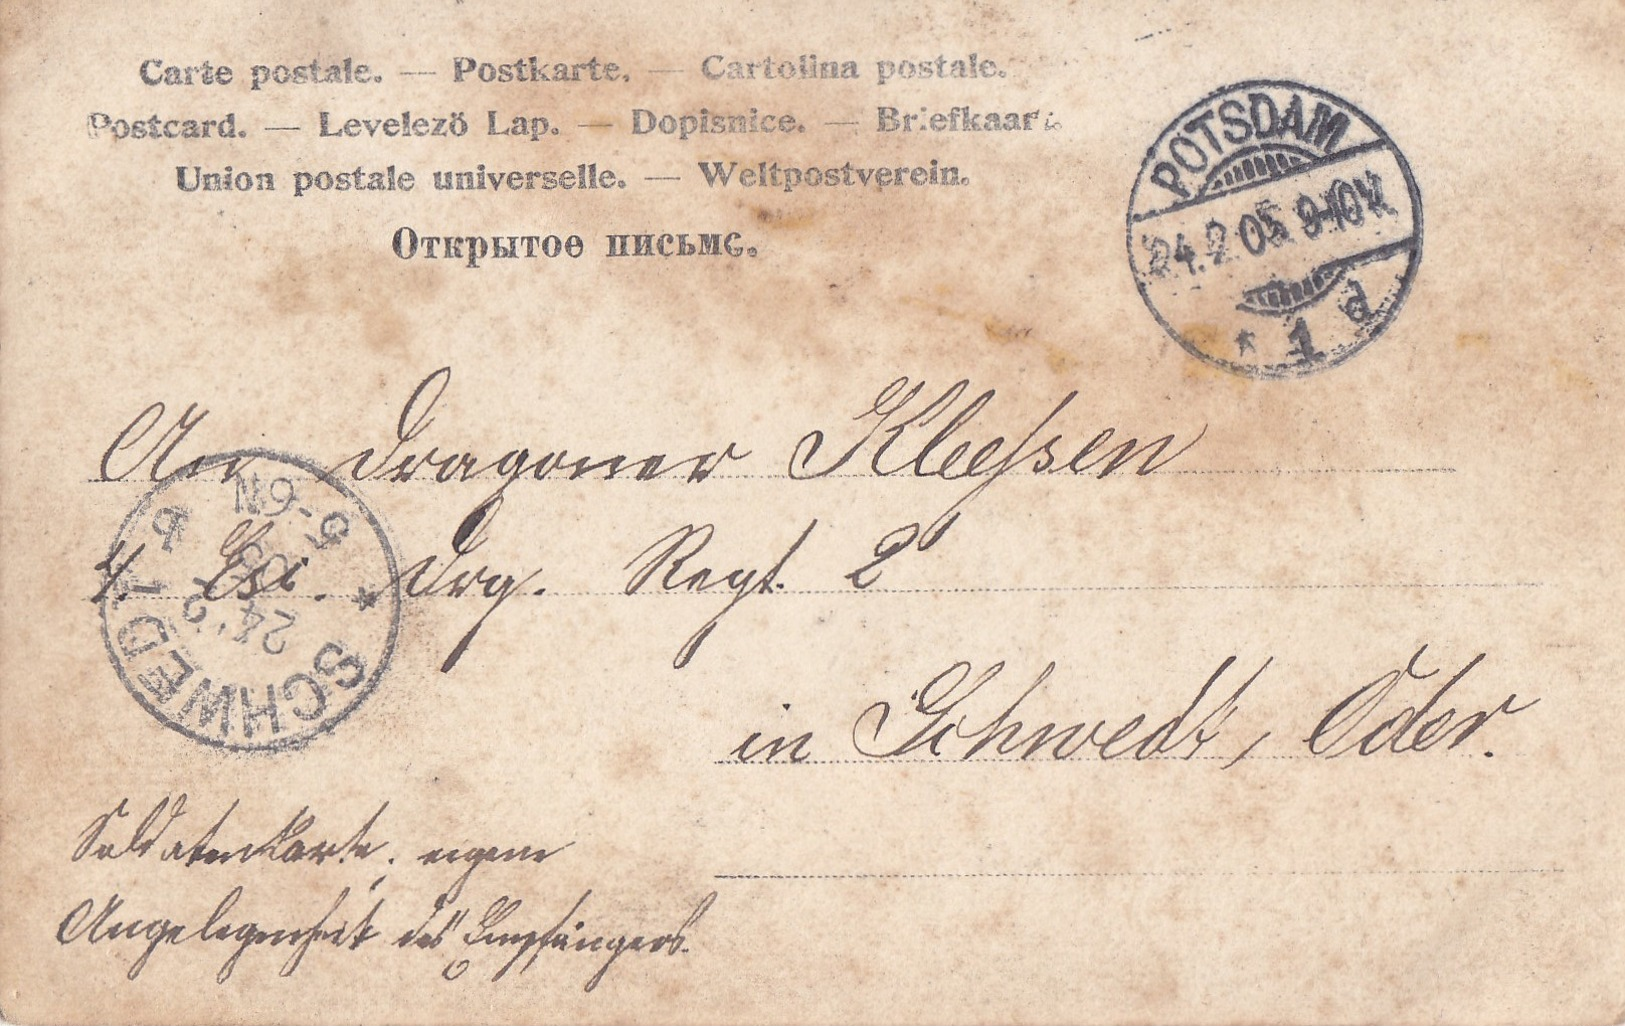 Carte postale. — Postkarte. — Cartolina postale.
Postcard. — Levelező Lap. — Dopisnice. — Briefkaart.
Union postale universelle. — Weltpostverein.
Открытое письмо.
POTSDAM
24.2.05 9-10V.
* 1 d
An Dragoner Kleessen
4. Esc. Drg. Regt. 2
in Schwedt, Oder.
SCHWEDT
24.2.
05
5-6N
*
Soldatenkarte, eigene
Angelegenheit des Empfängers.